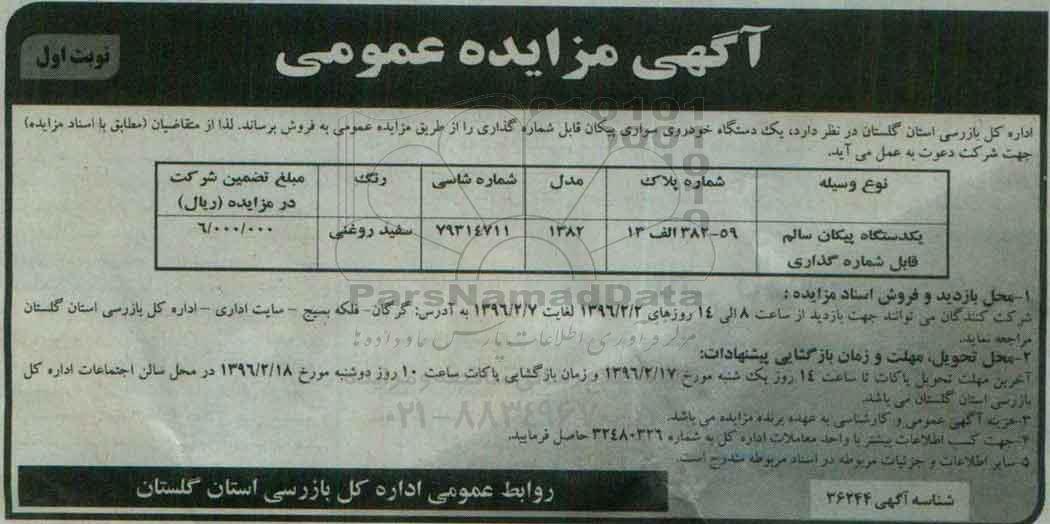 آگهی مزایده عمومی
نوبت اول
اداره کل بازرسی استان گلستان در نظر دارد، یک دستگاه خودروی سواری پیکان قابل شماره گذاری را از طریق مزایده عمومی به فروش برساند. لذا از متقاضیان (مطابق با اسناد مزایده)
جهت شرکت دعوت به عمل می آید.
نوع وسیله شماره پلاک مدل شماره شاسی رنگ مبلغ تضمین شرکت
در مزایده (ریال)
یکدستگاه پیکان سالم ۵۹-۳۸۲ الف ۱۳ ۱۳۸۲ ۷۹۳۱٤۷۱۱ سفید روغنی ٦/۰۰۰/۰۰۰
قابل شماره گذاری
۱-محل بازدید و فروش اسناد مزایده :
شرکت کنندگان می توانند جهت بازدید از ساعت ۸ الی ۱٤ روزهای ۱۳۹٦/۲/۲ لغایت ۱۳۹٦/۲/۷ به آدرس: گرگان- فلکه بسیج - سایت اداری - اداره کل بازرسی استان گلستان
مراجعه نمایند.
۲-محل تحویل، مهلت و زمان بازگشایی پیشنهادات:
آخرین مهلت تحویل پاکات تا ساعت ۱٤ روز یک شنبه مورخ ۱۳۹٦/۲/۱۷ و زمان بازگشایی پاکات ساعت ۱۰ روز دوشنبه مورخ ۱۳۹٦/۲/۱۸ در محل سالن اجتماعات اداره کل
بازرسی استان گلستان می باشد.
۳-هزینه آگهی عمومی و کارشناسی به عهده برنده مزایده می باشد.
۴-جهت کسب اطلاعات بیشتر با واحد معاملات اداره کل به شماره ۳۲٤۸۰۳۲٦ حاصل فرمایید.
۵-سایر اطلاعات و جزئیات مربوطه در اسناد مربوطه مندرج است.
روابط عمومی اداره کل بازرسی استان گلستان
شناسه آگهی ۳۶۲۴۴
ParsNamadData
۰۲۱-۸۸۳۴۹۶۷۰